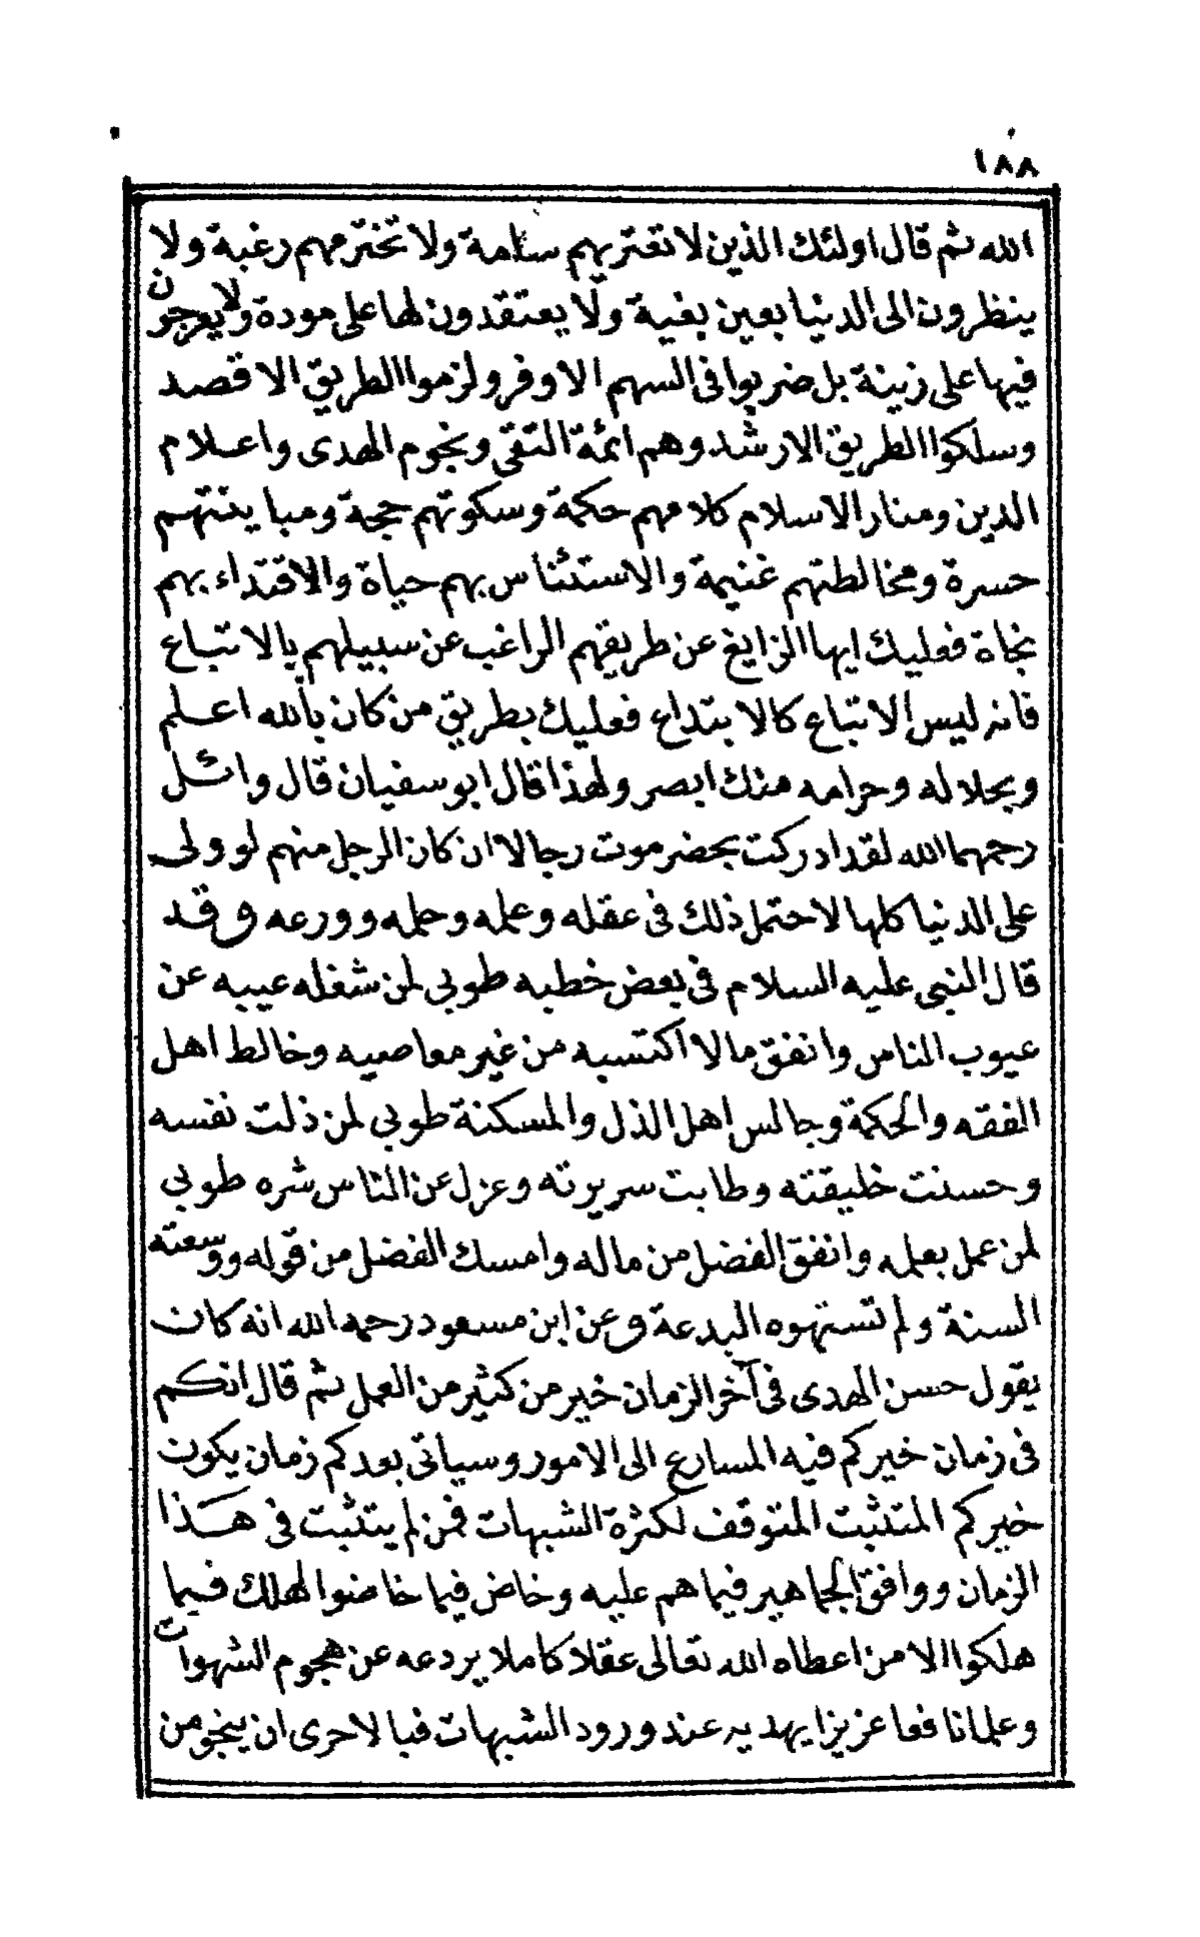 ١٨٨
الله ثم قال اولئك الذين لا تعتريهم سآمة ولا تخترمهم رغبة ولا
ينظرون الى الدنيا بعين بغية ولا يعتقدون لها على مودة ولا يعرجون
فيها على زينة بل ضربوا فى السهم الاوفر ولزموا الطريق الاقصد
وسلكوا الطريق الارشد وهم ائمة التقى ونجوم الهدى واعلام
الدين ومنار الاسلام كلامهم حكمة وسكوتهم حجة ومباينتهم
حسرة ومخالطتهم غنيمة والاستئناس بهم حياة والاقتداء بهم
نجاة فعليك ايها الزايغ عن طريقهم الراغب عن سبيلهم بالاتباع
فانه ليس الاتباع كالابتداع فعليك بطريق من كان بالله اعلم
وبحلاله وحرامه منك ابصر ولهذا قال ابو سفيان قال وائل
رحمهما الله لقد ادركت بحضرموت رجالا ان كان الرجل منهم لو ولى
على الدنيا كلها لاحتمل ذلك فى عقله وعلمه وحلمه وورعه وقد
قال النبى عليه السلام فى بعض خطبه طوبى لمن شغله عيبه عن
عيوب الناس وانفق مالا اكتسبه من غير معاصيه وخالط اهل
الفقه والحكمة وجالس اهل الذل والمسكنة طوبى لمن ذلت نفسه
وحسنت خليقته وطابت سريرته وعزل عن الناس شره طوبى
لمن عمل بعلمه وانفق الفضل من ماله وامسك الفضل من قوله ووسعته
السنة ولم تستهوه البدعة وعن ابن مسعود رحمه الله انه كان
يقول حسن الهدى فى آخر الزمان خير من كثير من العمل ثم قال انكم
فى زمان خيركم فيه المسارع الى الامور وسياتى بعدكم زمان يكون
خيركم المتثبت المتوقف لكثرة الشبهات فمن لم يتثبت فى هذا
الزمان ووافق الجماهير فيما هم عليه وخاض فيما خاضوا لهلك فيما
هلكوا الا من اعطاه الله تعالى عقلا كاملا يردعه عن هجوم الشهوات
وعلما نافعا عزيزا يهديه عند ورود الشبهات فبالاحرى ان ينجو من